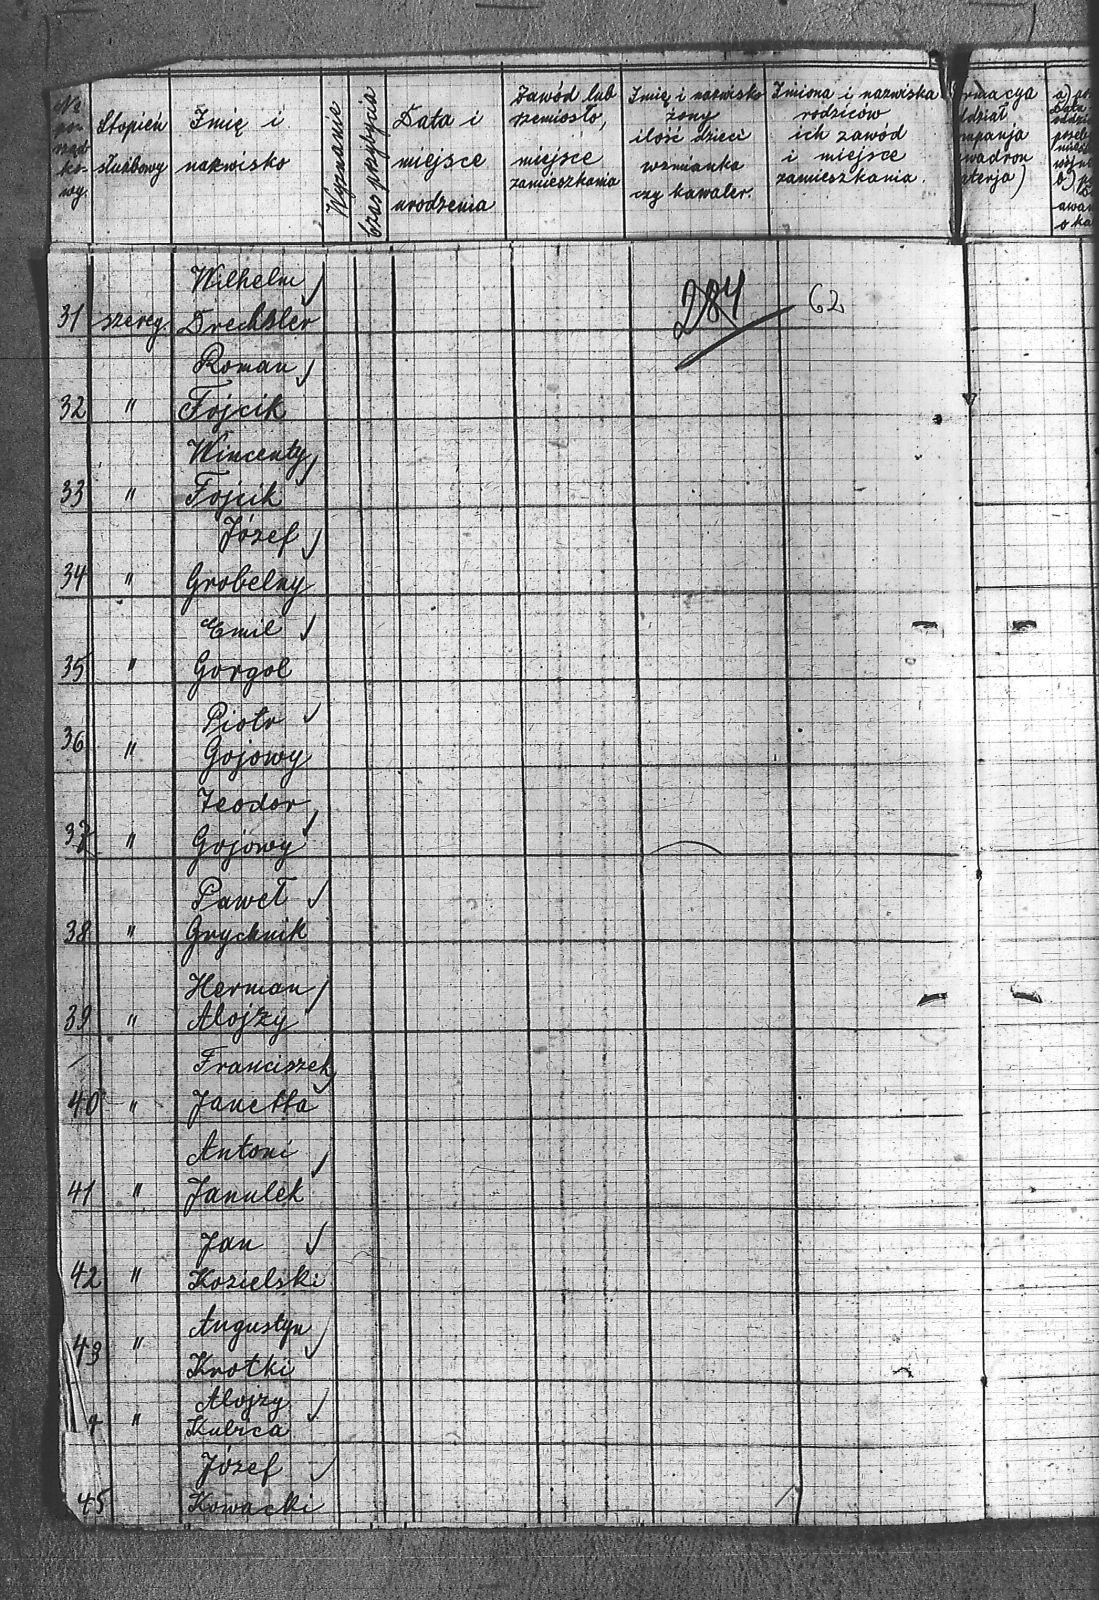 No por- ząd- ko- wy.
Stopień służbowy
Imię i nazwisko
Wyznanie
Czas przybycia
Data i miejsce urodzenia
Zawód lub rzemiosło, miejsce zamieszkania
Imię i nazwisko żony ilość dzieci wzmianka czy kawaler.
Imiona i nazwiska rodziców ich zawód i miejsce zamieszkania.
rmacya
ddział
mpanja
wadron
terja)
284 62
Wilhelm
31 szereg. Drechsler
Roman
32 " Fojcik
Wincenty
33 " Fojcik
Józef
34 " Grobelny
Emil
35 " Gorgol
Piotr
36 " Gojowy
Teodor
37 " Gojowy
Paweł
38 " Grychnik
Herman
39 " Alojzy
Franciszek
40 " Janetta
Antoni
41 " Janulek
Jan
42 " Kozielski
Augustyn
43 " Krotki
Alojzy
" Kubica
Józef
45 Kowacki